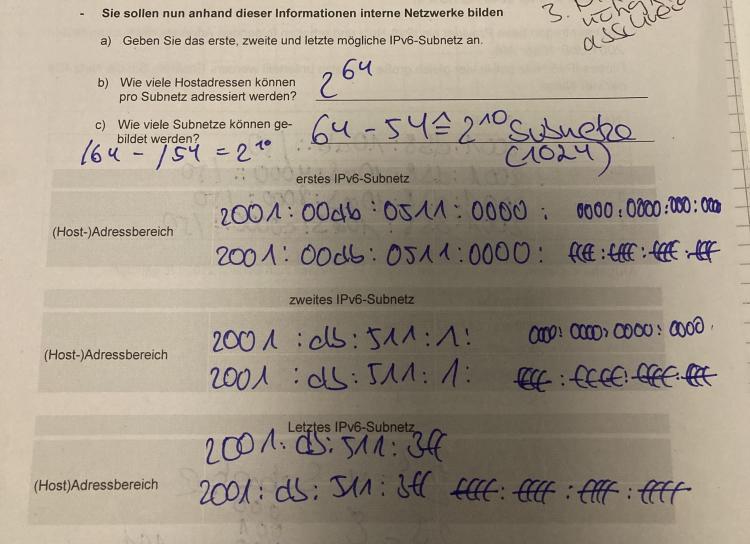 - Sie sollen nun anhand dieser Informationen interne Netzwerke bilden
3.
a) Geben Sie das erste, zweite und letzte mögliche IPv6-Subnetz an.
b) Wie viele Hostadressen können pro Subnetz adressiert werden? 2^64
c) Wie viele Subnetze können gebildet werden? 64 - 54 ≙ 2^10 Subnetze
/64 - /54 = 2^10 (1024)
erstes IPv6-Subnetz
(Host-)Adressbereich
2001:00db:0511:0000: 0000:0000:000:000
2001:00db:0511:0000: ffff:ffff:ffff:fff
zweites IPv6-Subnetz
(Host-)Adressbereich
2001:db:511:1: 000:0000:0000:0000
2001:db:511:1: ffff:ffff:ffff:ffff
Letztes IPv6-Subnetz
2001:db:511:3ff
(Host)Adressbereich
2001:db:511:3ff ffff:ffff:ffff:ffff